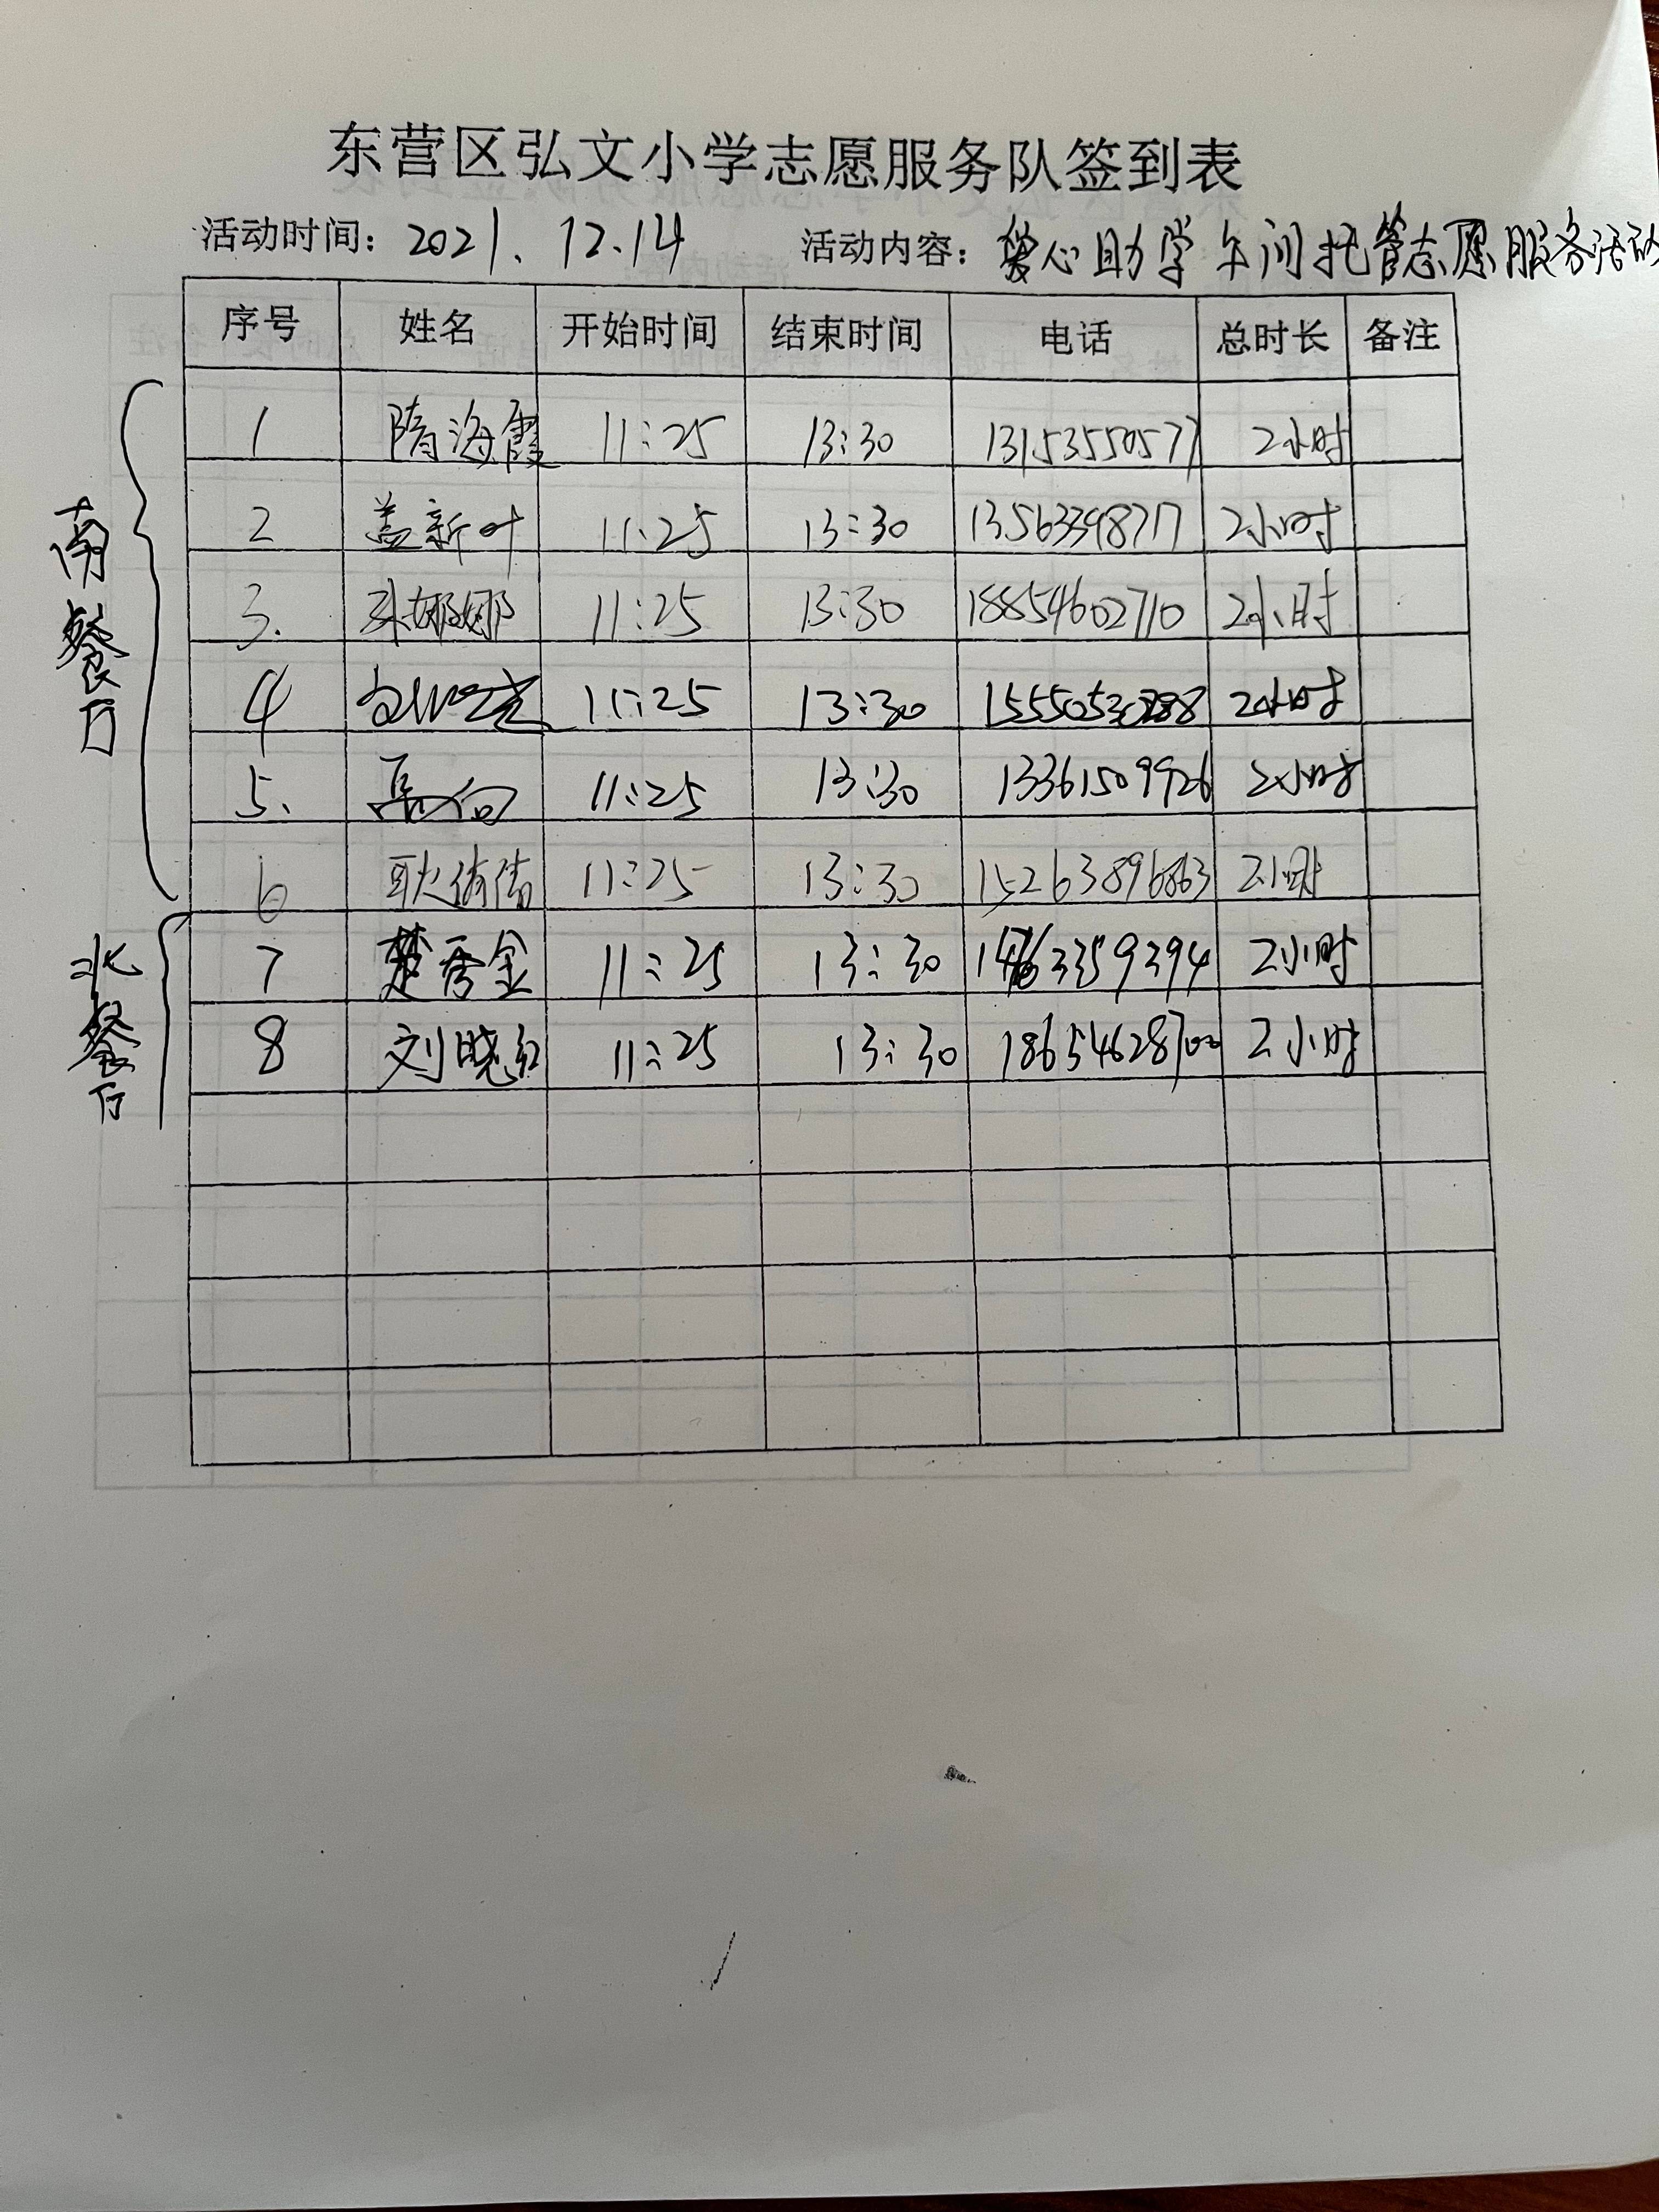 东营区弘文小学志愿服务队签到表
活动时间：2021.12.14 活动内容：爱心助学午间托管志愿服务活动
序号 姓名 开始时间 结束时间 电话 总时长 备注
南餐厅
1 隋海霞 11:25 13:30 13153550577 2小时
2 盖新叶 11:25 13:30 13563398717 2小时
3. 孙娜娜 11:25 13:30 18854602710 2小时
4 11:25 13:30 2小时
5. 11:25 13:30 13361509926 2小时
6 耿倩倩 11:25 13:30 15263896863 2小时
北餐厅
7 楚秀金 11:25 13:30 2小时
8 刘晓红 11:25 13:30 18654628700 2小时